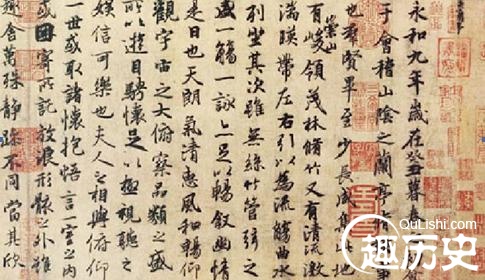 永和九年歲在癸丑暮
于會稽山陰之蘭亭脩稧事
也羣賢畢至少長咸集此地
有崇山峻領茂林脩竹又有清流激
湍暎帶左右引以為流觴曲水
列坐其次雖無絲竹管弦之
盛一觴一詠亦足以暢敘幽情
是日也天朗氣清惠風和暢仰
觀宇宙之大俯察品類之盛
所以遊目騁懷足以極視聽之
娛信可樂也夫人之相與俯仰
一世或取諸懷抱悟言一室之內
或因寄所託放浪形骸之外雖
趣舍萬殊靜躁不同當其欣
QuLiShi.com
趣历史